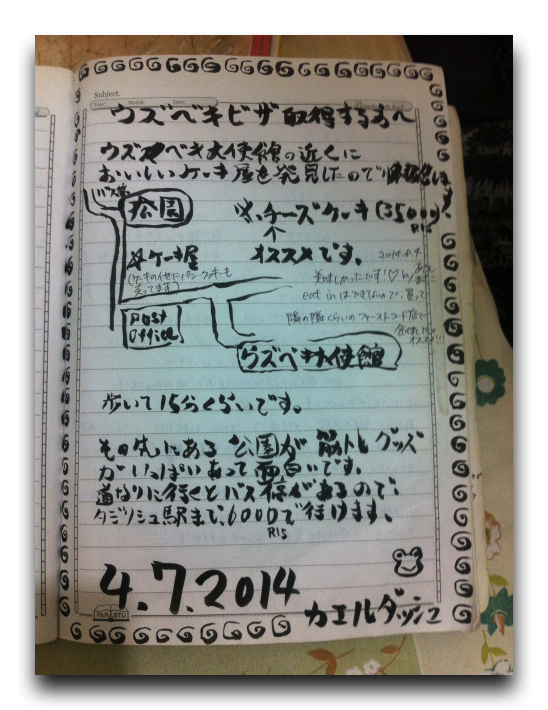 Subject.
Year. Month. Date.
ウズベキビザ取得する方へ
ウズベキ大使館の近くに
おいしいケーキ屋を発見したので
バス停
公園
チーズケーキ(35000)
Rls
↑
オススメです。
ケーキ屋
(ケーキの他にパン・クッキーも
売ってます)
2014.8.4
美味しかったです!♡
eat inはできないので、買って
隣の隣くらいのファーストフード店で
オススメ!!!
Post
Office
ウズベキ大使館
歩いて15分くらいです。
その先にある公園が筋トレグッズ
がいっぱいあって面白いです。
道なりに行くとバス停があるので、
タジリシュ駅まで、6000で行けます。
Rls
4.7.2014
カエルダッシュ
PARASTU